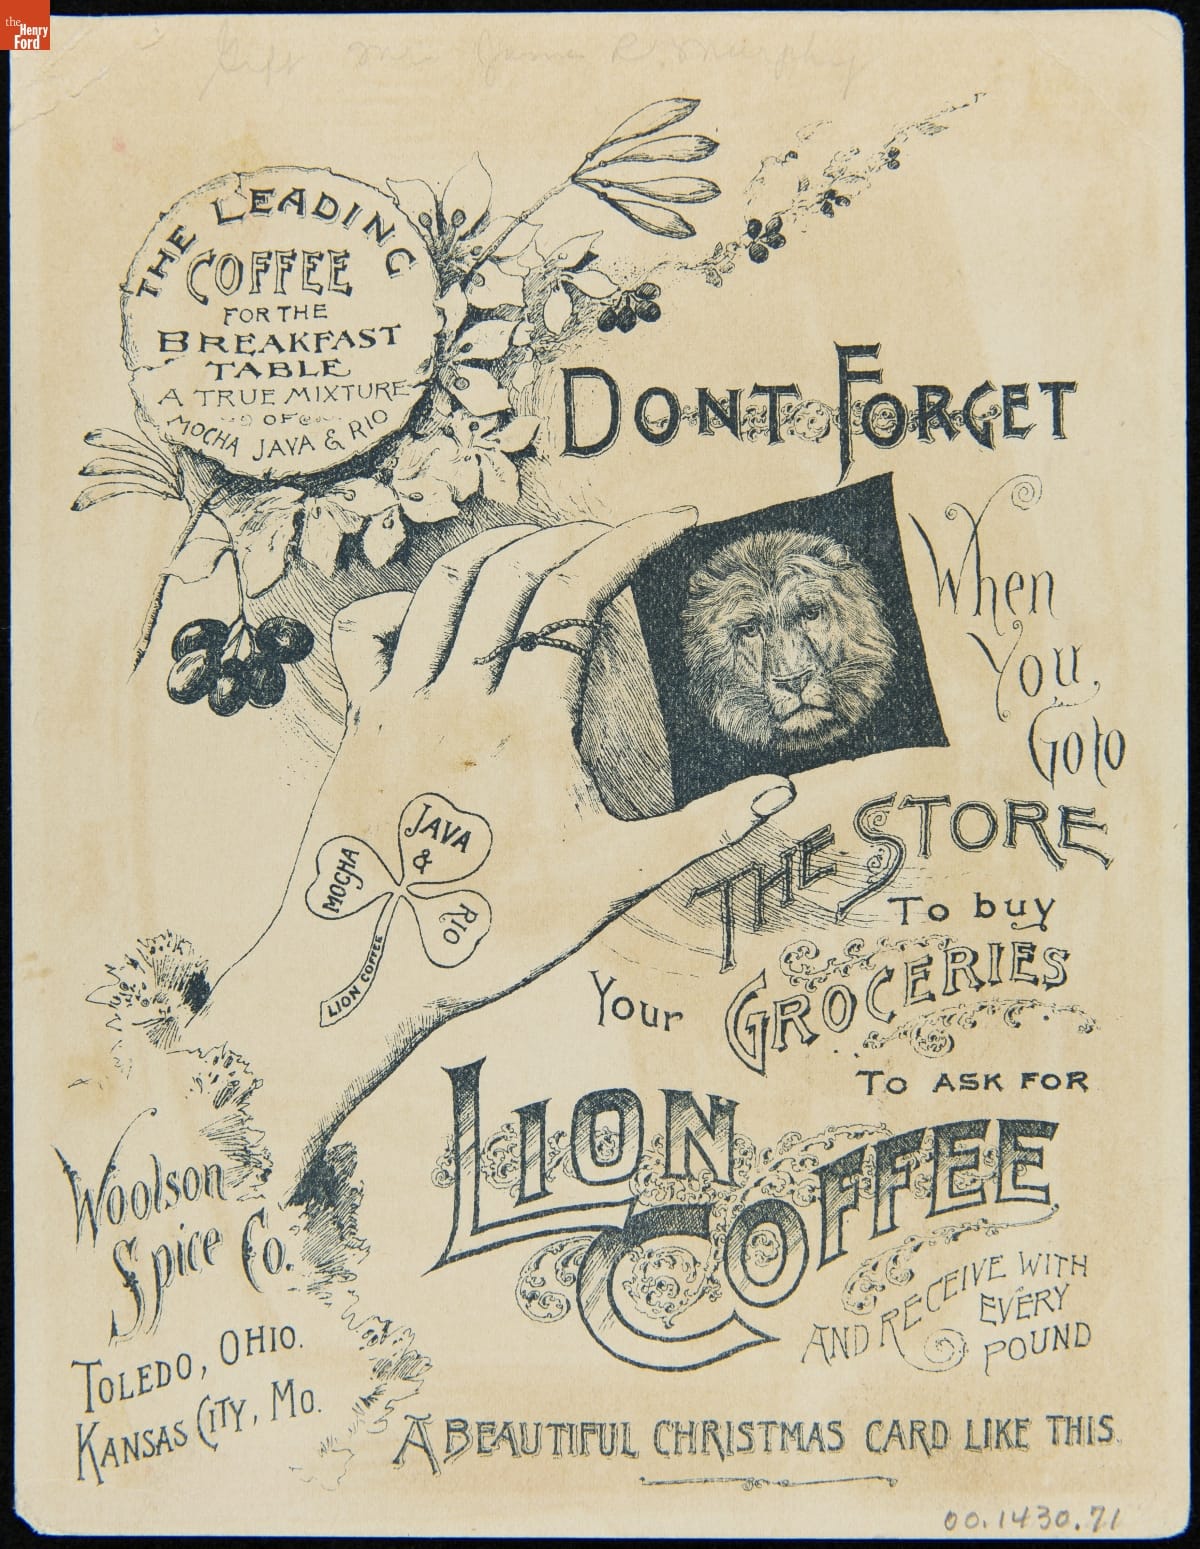 the
Henry
Ford
Gift Mrs. James R. Murphy
THE LEADING
COFFEE
FOR THE
BREAKFAST
TABLE
A TRUE MIXTURE
OF
MOCHA JAVA & RIO
DONT FORGET
When
You
Go to
THE STORE
To buy
Your GROCERIES
TO ASK FOR
LION
COFFEE
AND RECEIVE WITH
EVERY
POUND
A BEAUTIFUL CHRISTMAS CARD LIKE THIS.
JAVA
&
MOCHA
RIO
LION COFFEE
Woolson
Spice Co.
TOLEDO, OHIO.
KANSAS CITY, MO.
00.1430.71